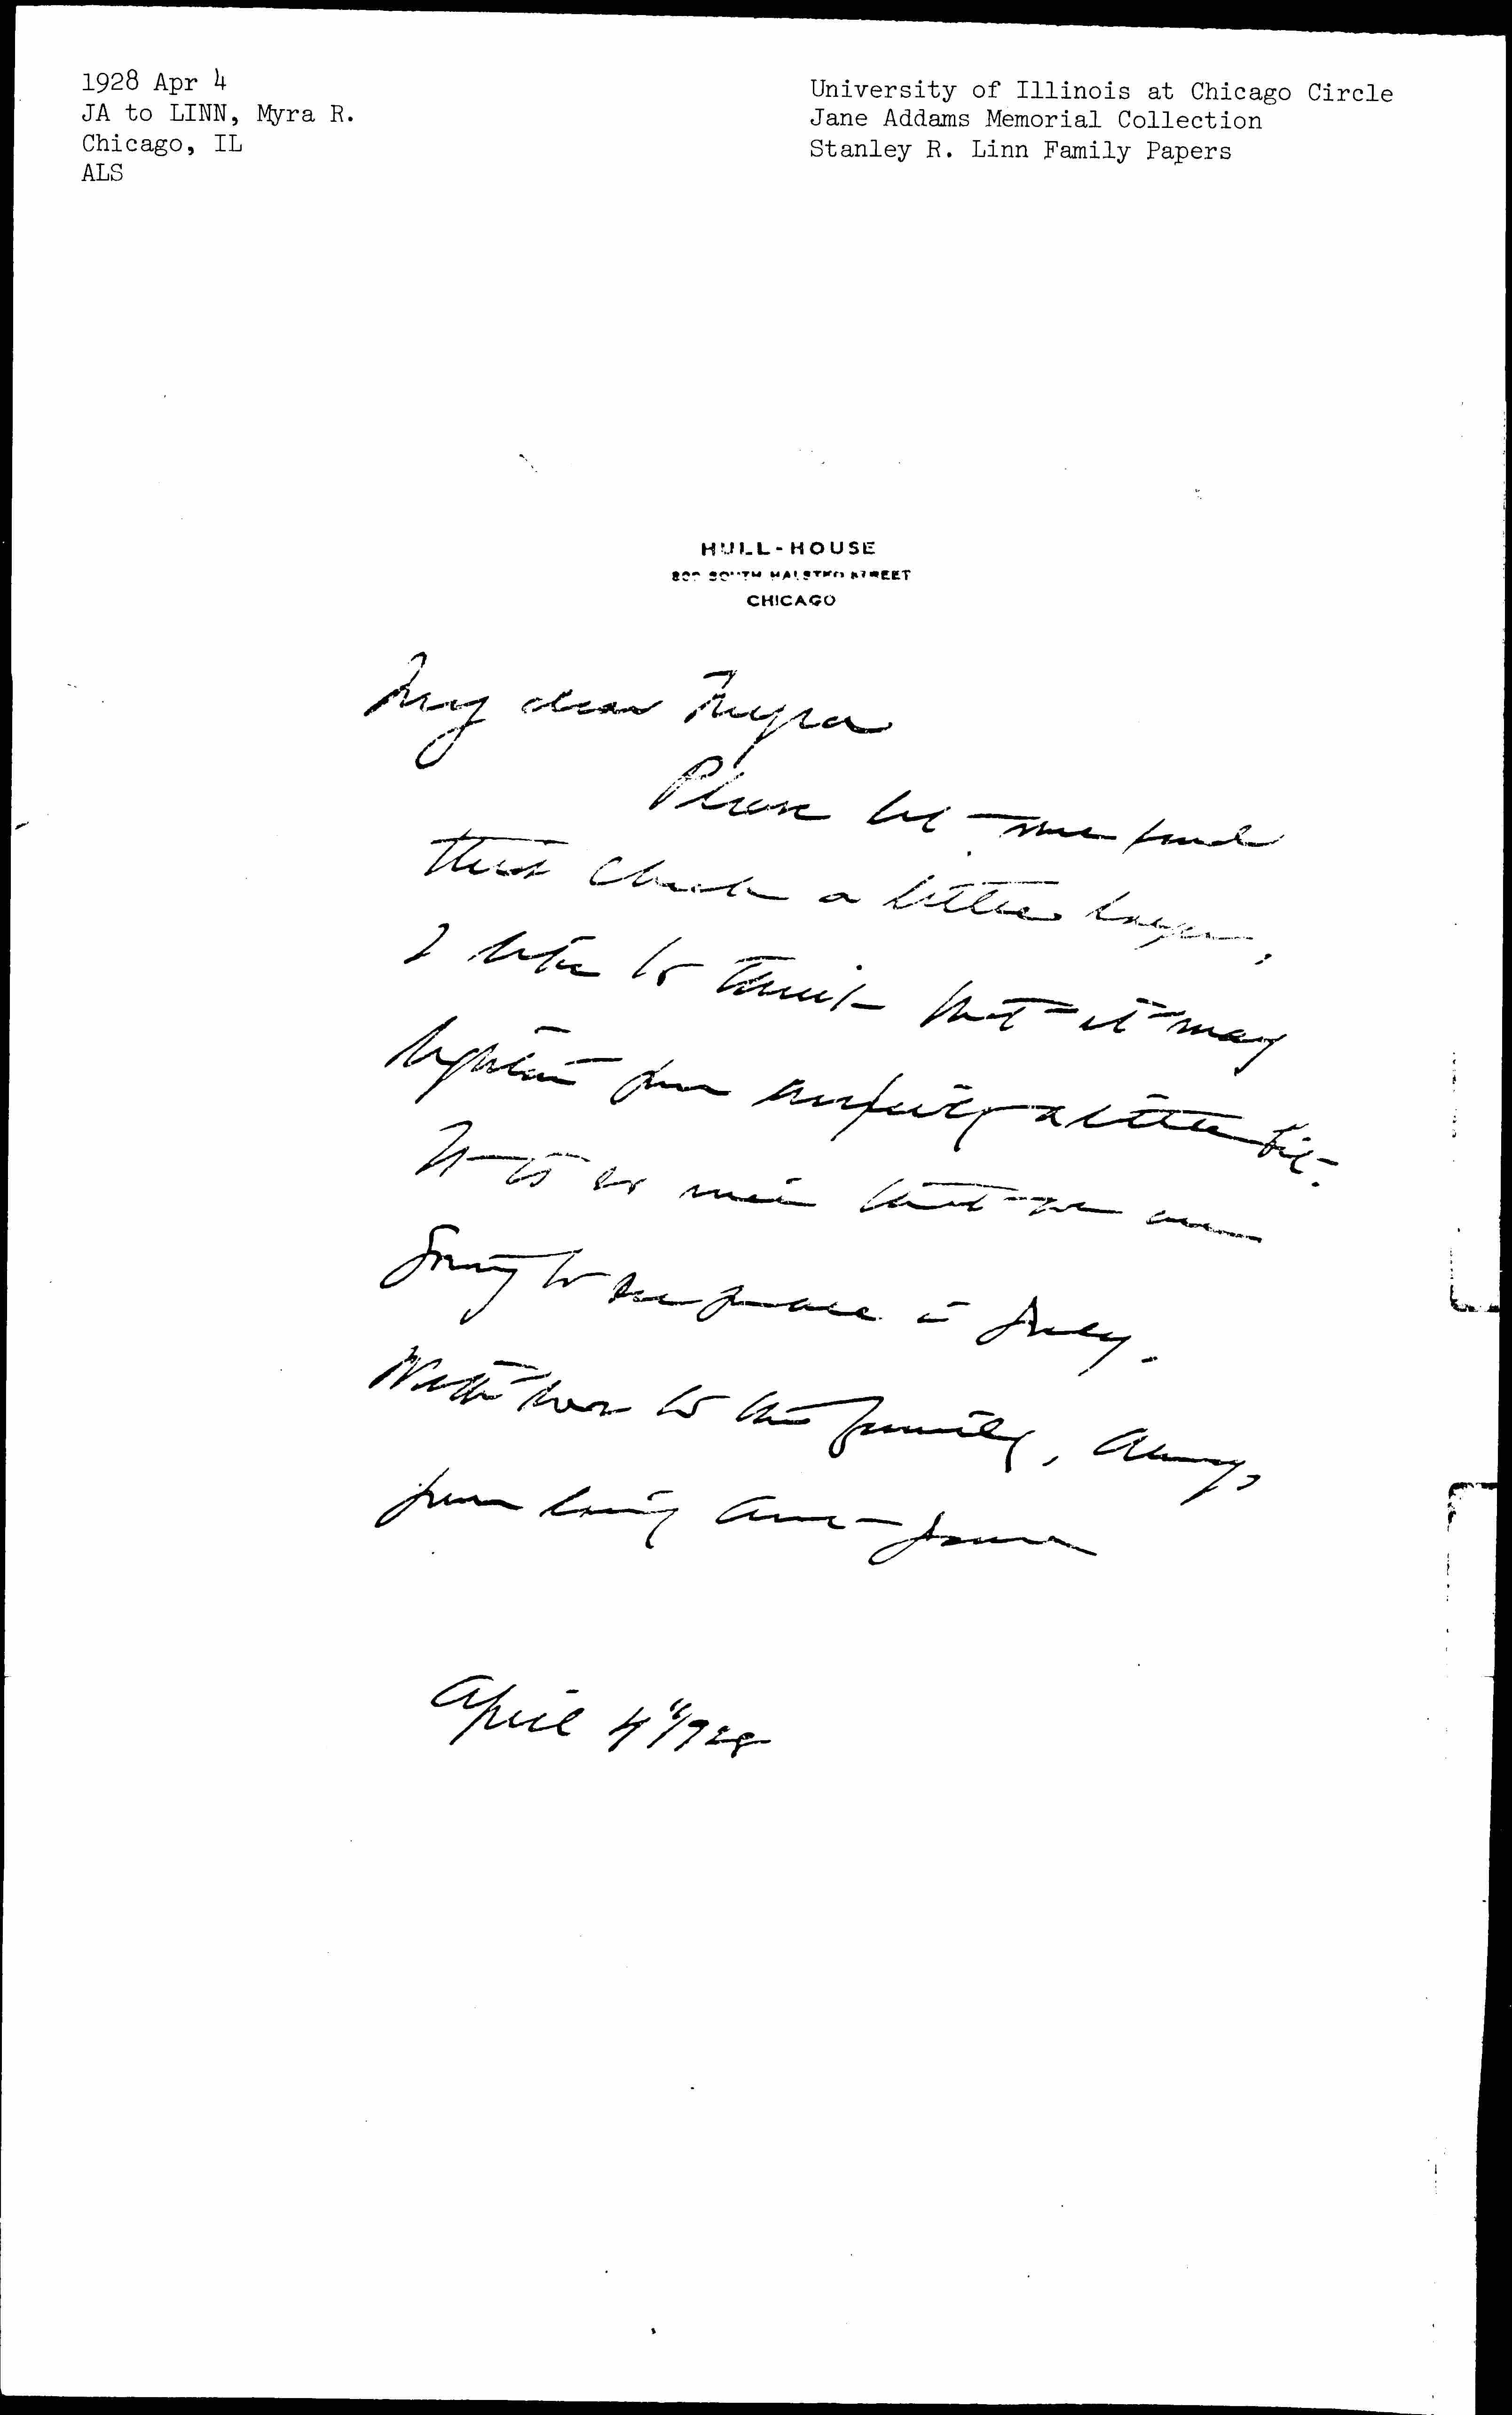 1928 Apr 4
JA to LINN, Myra R.
Chicago, IL
ALS
University of Illinois at Chicago Circle
Jane Addams Memorial Collection
Stanley R. Linn Family Papers
HULL-HOUSE
800 SOUTH HALSTED STREET
CHICAGO
My dear Myra
Please let me send
this check a little larger,
I like to think that it may
lighten your a little bit.
It is so nice that we are
going to see you all in July.
With love to the family, always
your loving Aunt Jane
April 4" 1928